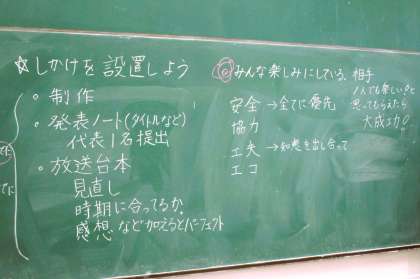 ☆しかけを設置しよう
。制作
。発表ノート(タイトルなど)
代表1名提出
。放送台本
見直し
時期に合ってるか
感想など加えるとパーフェクト
みんな楽しみにしている。相手
1人でも楽しいなと
思ってもらえたら
大成功!!
安全→全てに優先
協力
工夫→知恵を出し合って
エコ